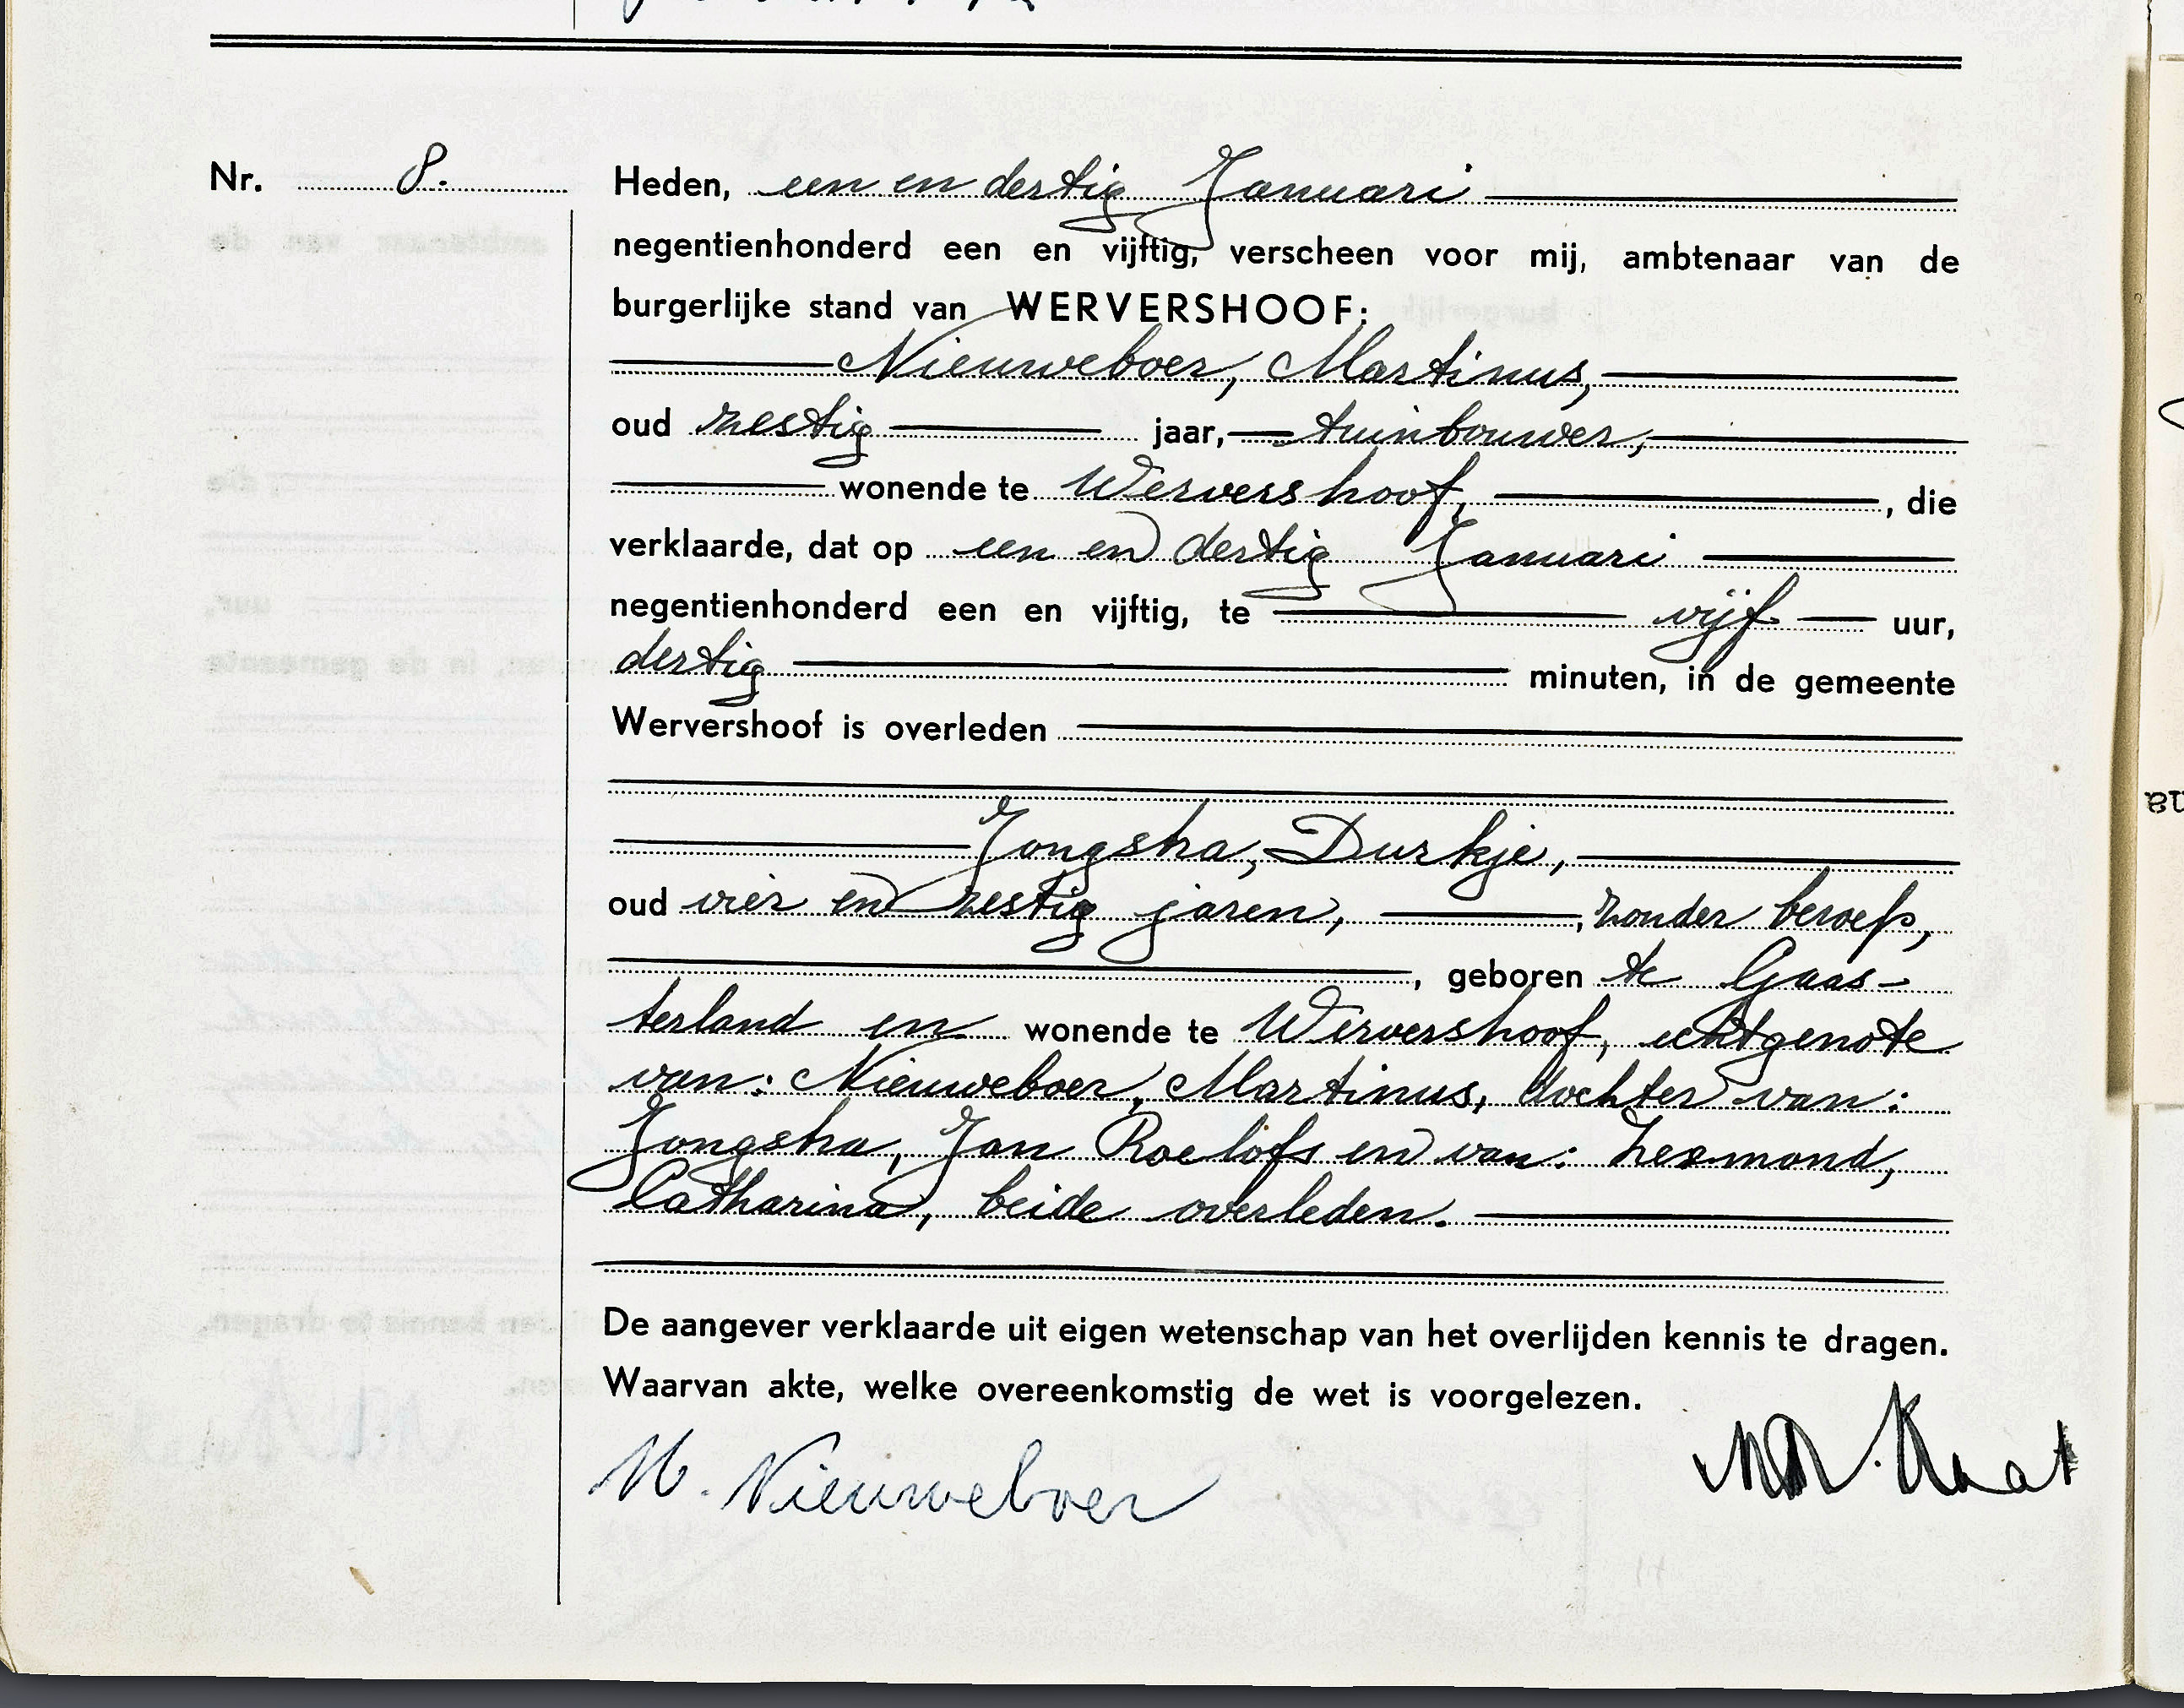 Nr. 8.
Heden, een en dertig Januari
negentienhonderd een en vijftig, verscheen voor mij, ambtenaar van de
burgerlijke stand van WERVERSHOOF:
Nieuweboer, Martinus,
oud zestig jaar, tuinbouwer,
wonende te Wervershoof, , die
verklaarde, dat op een en dertig Januari
negentienhonderd een en vijftig, te vijf uur,
dertig minuten, in de gemeente
Wervershoof is overleden
Jongsma, Durkje,
oud vier en zestig jaren, , zonder beroep,
, geboren te Gaas-
terland en wonende te Wervershoof, echtgenote
van: Nieuweboer, Martinus, dochter van:
Jongsma, Jan Roelofs en van: Zesmond,
Catharina, beide overleden.
De aangever verklaarde uit eigen wetenschap van het overlijden kennis te dragen.
Waarvan akte, welke overeenkomstig de wet is voorgelezen.
M. Nieuweboer